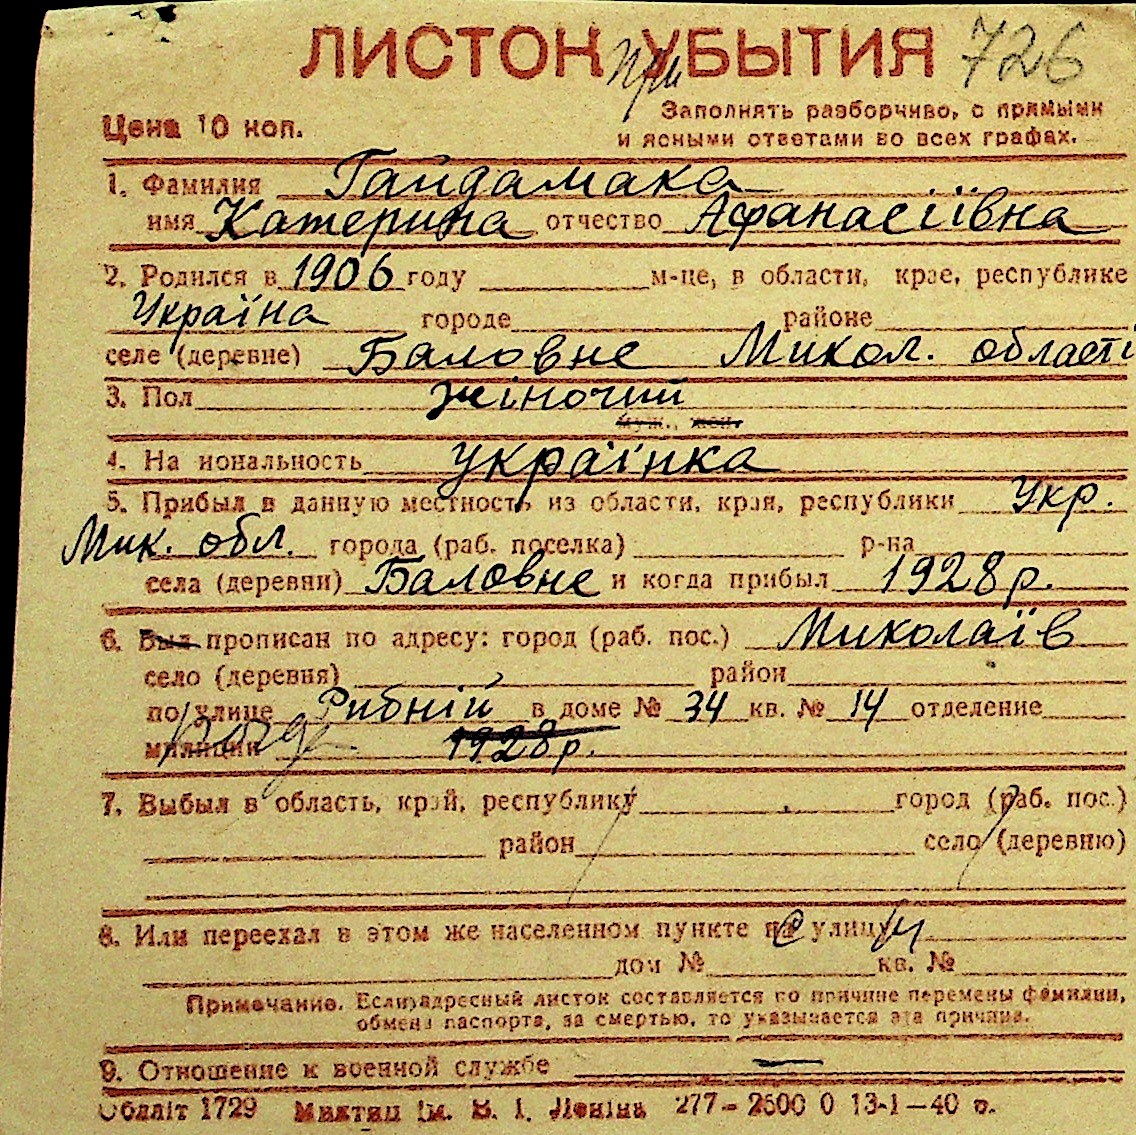 ЛИСТОК при УБЫТИЯ 726
Цена 10 коп.
Заполнять разборчиво, с прямыми
и ясными ответами во всех графах.
1. Фамилия Гайдамака
имя Катерина отчество Афанасіївна
2. Родился в 1906 году м-це, в области, крае, республике
Україна городе районе
селе (деревне) Баловне Микол. області
3. Пол жіночий
муж., жен.
4. На иональность українка
5. Прибыл в данную местность из области, края, республики Укр.
Мик. обл. города (раб. поселка) р-на
села (деревни) Баловне и когда прибыл 1928 р.
6. Был прописан по адресу: город (раб. пос.) Миколаїв
село (деревня) район
по улице Рибній в доме № 34 кв. № 14 отделение
милиции 1928 р.
7. Выбыл в область, край, республику город (раб. пос.)
район село (деревню)
8. Или переехал в этом же населенном пункте с улицы
дом № кв. №
Примечание. Если адресный листок составляется по причине перемены фамилии,
обмена паспорта, за смертью, то указывается эта причина.
9. Отношение к военной службе —
Обліт 1729 Миктип ім. В. І. Леніна 277-2500 0 13-1-40 р.